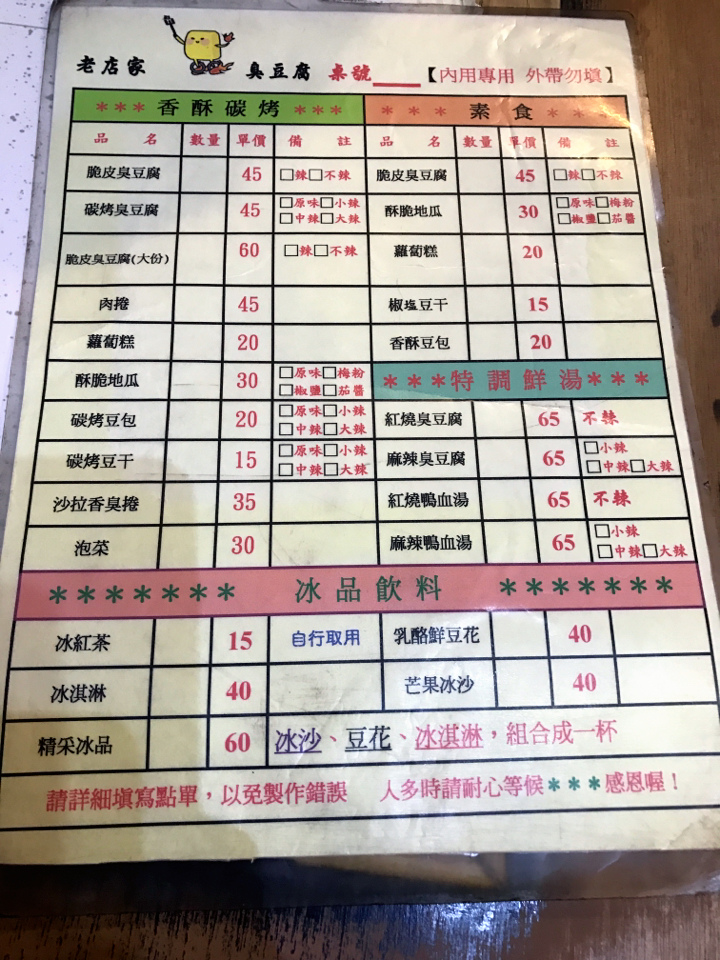 老店家 臭豆腐 桌號____【內用專用 外帶勿填】
*** 香酥碳烤 *** *** 素食 ***
品名 數量 單價 備註 品名 數量 單價 備註
脆皮臭豆腐 45 □辣□不辣 脆皮臭豆腐 45 □辣□不辣
碳烤臭豆腐 45 □原味□小辣 □中辣□大辣 酥脆地瓜 30 □原味□梅粉 □椒鹽□茄醬
脆皮臭豆腐(大份) 60 □辣□不辣 蘿蔔糕 20
肉捲 45 椒塩豆干 15
蘿蔔糕 20 香酥豆包 20
酥脆地瓜 30 □原味□梅粉 □椒鹽□茄醬 ***特調鮮湯***
碳烤豆包 20 □原味□小辣 □中辣□大辣 紅燒臭豆腐 65 不辣
碳烤豆干 15 □原味□小辣 □中辣□大辣 麻辣臭豆腐 65 □小辣 □中辣□大辣
沙拉香臭捲 35 紅燒鴨血湯 65 不辣
泡菜 30 麻辣鴨血湯 65 □小辣 □中辣□大辣
******* 冰品飲料 *******
冰紅茶 15 自行取用 乳酪鮮豆花 40
冰淇淋 40 芒果冰沙 40
精采冰品 60 冰沙、豆花、冰淇淋，組合成一杯
請詳細填寫點單，以免製作錯誤 人多時請耐心等候***感恩喔！